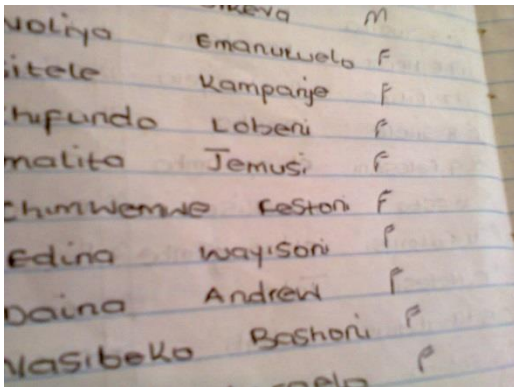 M
voliya Emanuwelo F
itele Kampanje F
hifundo Lobeni F
malita Jemusi F
chimwemwe Festoni F
Edina Wayisoni F
Daina Andrew F
Vasibeko Bashoni F
F